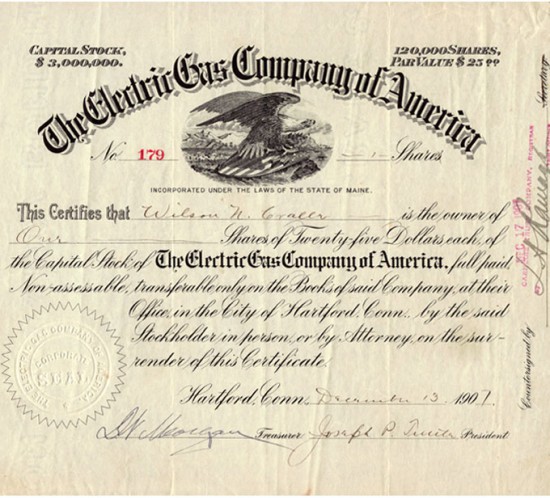 CAPITAL STOCK,
$ 3,000,000.
120,000 SHARES,
PAR VALUE $ 25 00
The Electric Gas Company of America
No 179 1 Shares
INCORPORATED UNDER THE LAWS OF THE STATE OF MAINE.
This Certifies that Wilson N. is the owner of
One Shares of Twenty-five Dollars each, of
the Capital Stock of The Electric Gas Company of America, full paid,
Non-assessable, transferable only on the Books of said Company, at their
Office, in the City of Hartford, Conn., by the said
Stockholder in person, or by Attorney, on the sur-
render of this Certificate.
Hartford, Conn. December 13 1907.
Treasurer Joseph P. President
THE ELECTRIC GAS COMPANY OF AMERICA
CORPORATE
SEAL
Countersigned by
DEC 17